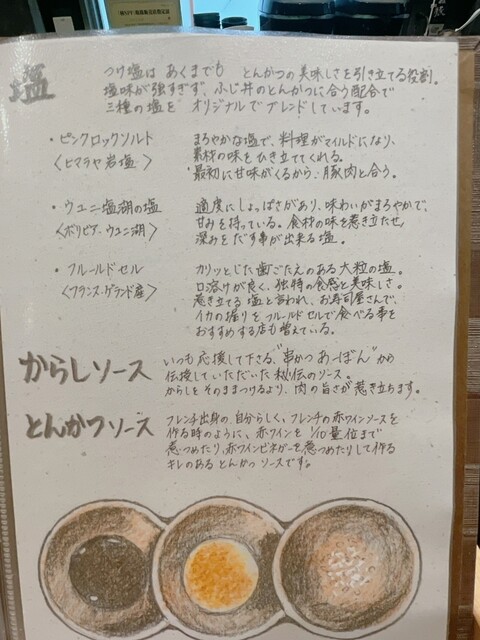 塩
つけ塩は あくまでも とんかつの美味しさを引き立てる役割。
塩味が強すぎず、ふじ井のとんかつに合う配合で
三種の塩を オリジナルでブレンドしています。
・ピンクロックソルト
〈ヒマラヤ岩塩〉
まろやかな塩で、料理がマイルドになり、
素材の味をひき立ててくれる。
最初に甘味がくるから、豚肉と合う。
・ウユニ塩湖の塩
〈ボリビア・ウユニ湖〉
適度にしょっぱさがあり、味わいがまろやかで、
甘みを持っている。食材の味を惹き立たせ、
深みをだす事が出来る塩。
・フルールドセル
〈フランス・ゲランド産〉
カリッとした歯ごたえのある大粒の塩。
口溶けが良く、独特の食感と美味しさ。
惹き立てる塩と言われ、お寿司屋さんで、
イカの握りをフルールドセルで食べる事を
おすすめする店も増えている。
からしソース
いつも応援して下さる、"串かつ あーぼん"から
伝授していただいた秘伝のソース。
からしをそのままつけるより、肉の旨さが惹き立ちます。
とんかつソース
フレンチ出身の自分らしく、フレンチの赤ワインソースを
作る時のように、赤ワインを 1/10量位まで
煮つめたり、赤ワインビネガーを煮つめたりして作る
キレのある とんかつ ソースです。